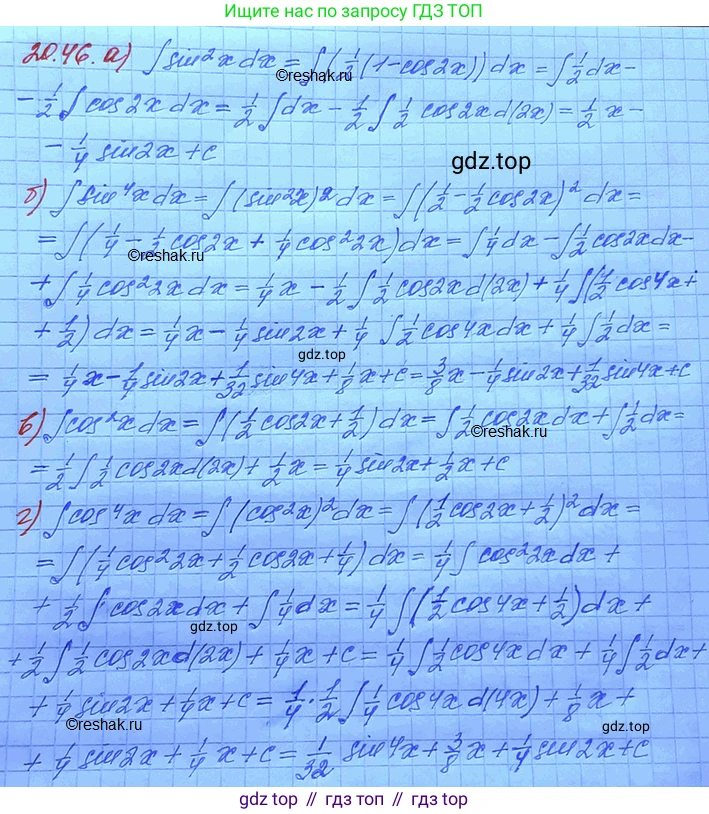 Ищите нас по запросу ГДЗ ТОП
20.46. а) ∫ sin²x dx = ∫(½(1-cos2x)) dx = ∫½dx -
©reshak.ru
- ½∫ cos2x dx = ½∫dx - ½∫ ½ cos2x d(2x) = ½x -
- ¼ sin2x + c
gdz.top
б) ∫ sin⁴x dx = ∫ (sin²x)² dx = ∫(½ - ½cos2x)² dx =
= ∫(¼ - ½cos2x + ¼cos²2x) dx = ∫¼dx - ∫½cos2x dx -
©reshak.ru
+ ∫¼cos²2x dx = ¼x - ½∫½cos2x d(2x) + ¼∫(½cos4x +
+ ½) dx = ¼x - ¼sin2x + ¼∫½cos4x dx + ¼∫½dx =
gdz.top
= ¼x - ¼sin2x + 1/32 sin4x + ⅛x + c = ⅜x - ¼sin2x + 1/32 sin4x + c
в) ∫cos²x dx = ∫(½cos2x + ½) dx = ∫½cos2x dx + ∫½dx =
©reshak.ru
= ½∫½cos2x d(2x) + ½x = ¼sin2x + ½x + c
г) ∫cos⁴x dx = ∫(cos²x)² dx = ∫(½cos2x + ½)² dx =
= ∫(¼cos²2x + ½cos2x + ¼) dx = ¼∫ cos²2x dx +
+ ½∫ cos2x dx + ∫¼dx = ¼∫(½cos4x + ½) dx +
gdz.top
+ ½∫½cos2x d(2x) + ¼x + c = ¼∫½cos4x dx + ¼∫½dx +
+ ¼sin2x + ¼x + c = ¼·½∫¼cos4x d(4x) + ⅛x +
©reshak.ru
+ ¼ sin2x + ¼x + c = 1/32 sin4x + ⅜x + ¼sin2x + c
©reshak.ru
gdz.top // гдз.топ // gdz.top